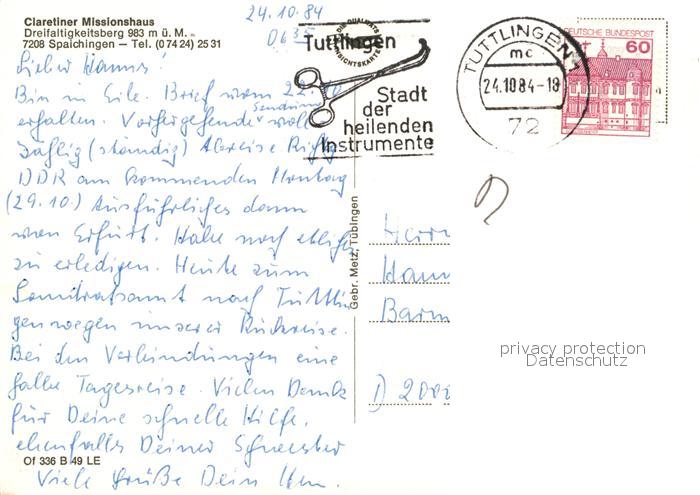 Claretiner Missionshaus
Dreifaltigkeitsberg 983 m ü. M.
7208 Spaichingen – Tel. (07424) 2531
24.10.84
0635
Lieber Hanns!
Bin in Eile. Brief vom 22.10
Sendung
erhalten. Vorhergehende voll
zählig (ständig) Abreise Richtg
DDR am kommenden Montag
(29.10.) Ausführliches dann
von Erfurt. Habe noch etliches
zu erledigen. Heute zum
Landratsamt nach Tuttlin
gen wegen unserer Rückreise.
Bei den Verbindungen eine
halbe Tagesreise. Vielen Dank
für Deine schnelle Hilfe,
ebenfalls Deiner Schwester
Viele Grüße Dein
Of 336 B 49 LE
Gebr. Metz, Tübingen
DIE QUALITÄTS
ANSICHTSKARTE
Tuttlingen
Stadt
der
heilenden
Instrumente
TUTTLINGEN 1
mc
24.10.84-18
72
DEUTSCHE BUNDESPOST
60
Herrn
Barm
D 200
privacy protection
Datenschutz